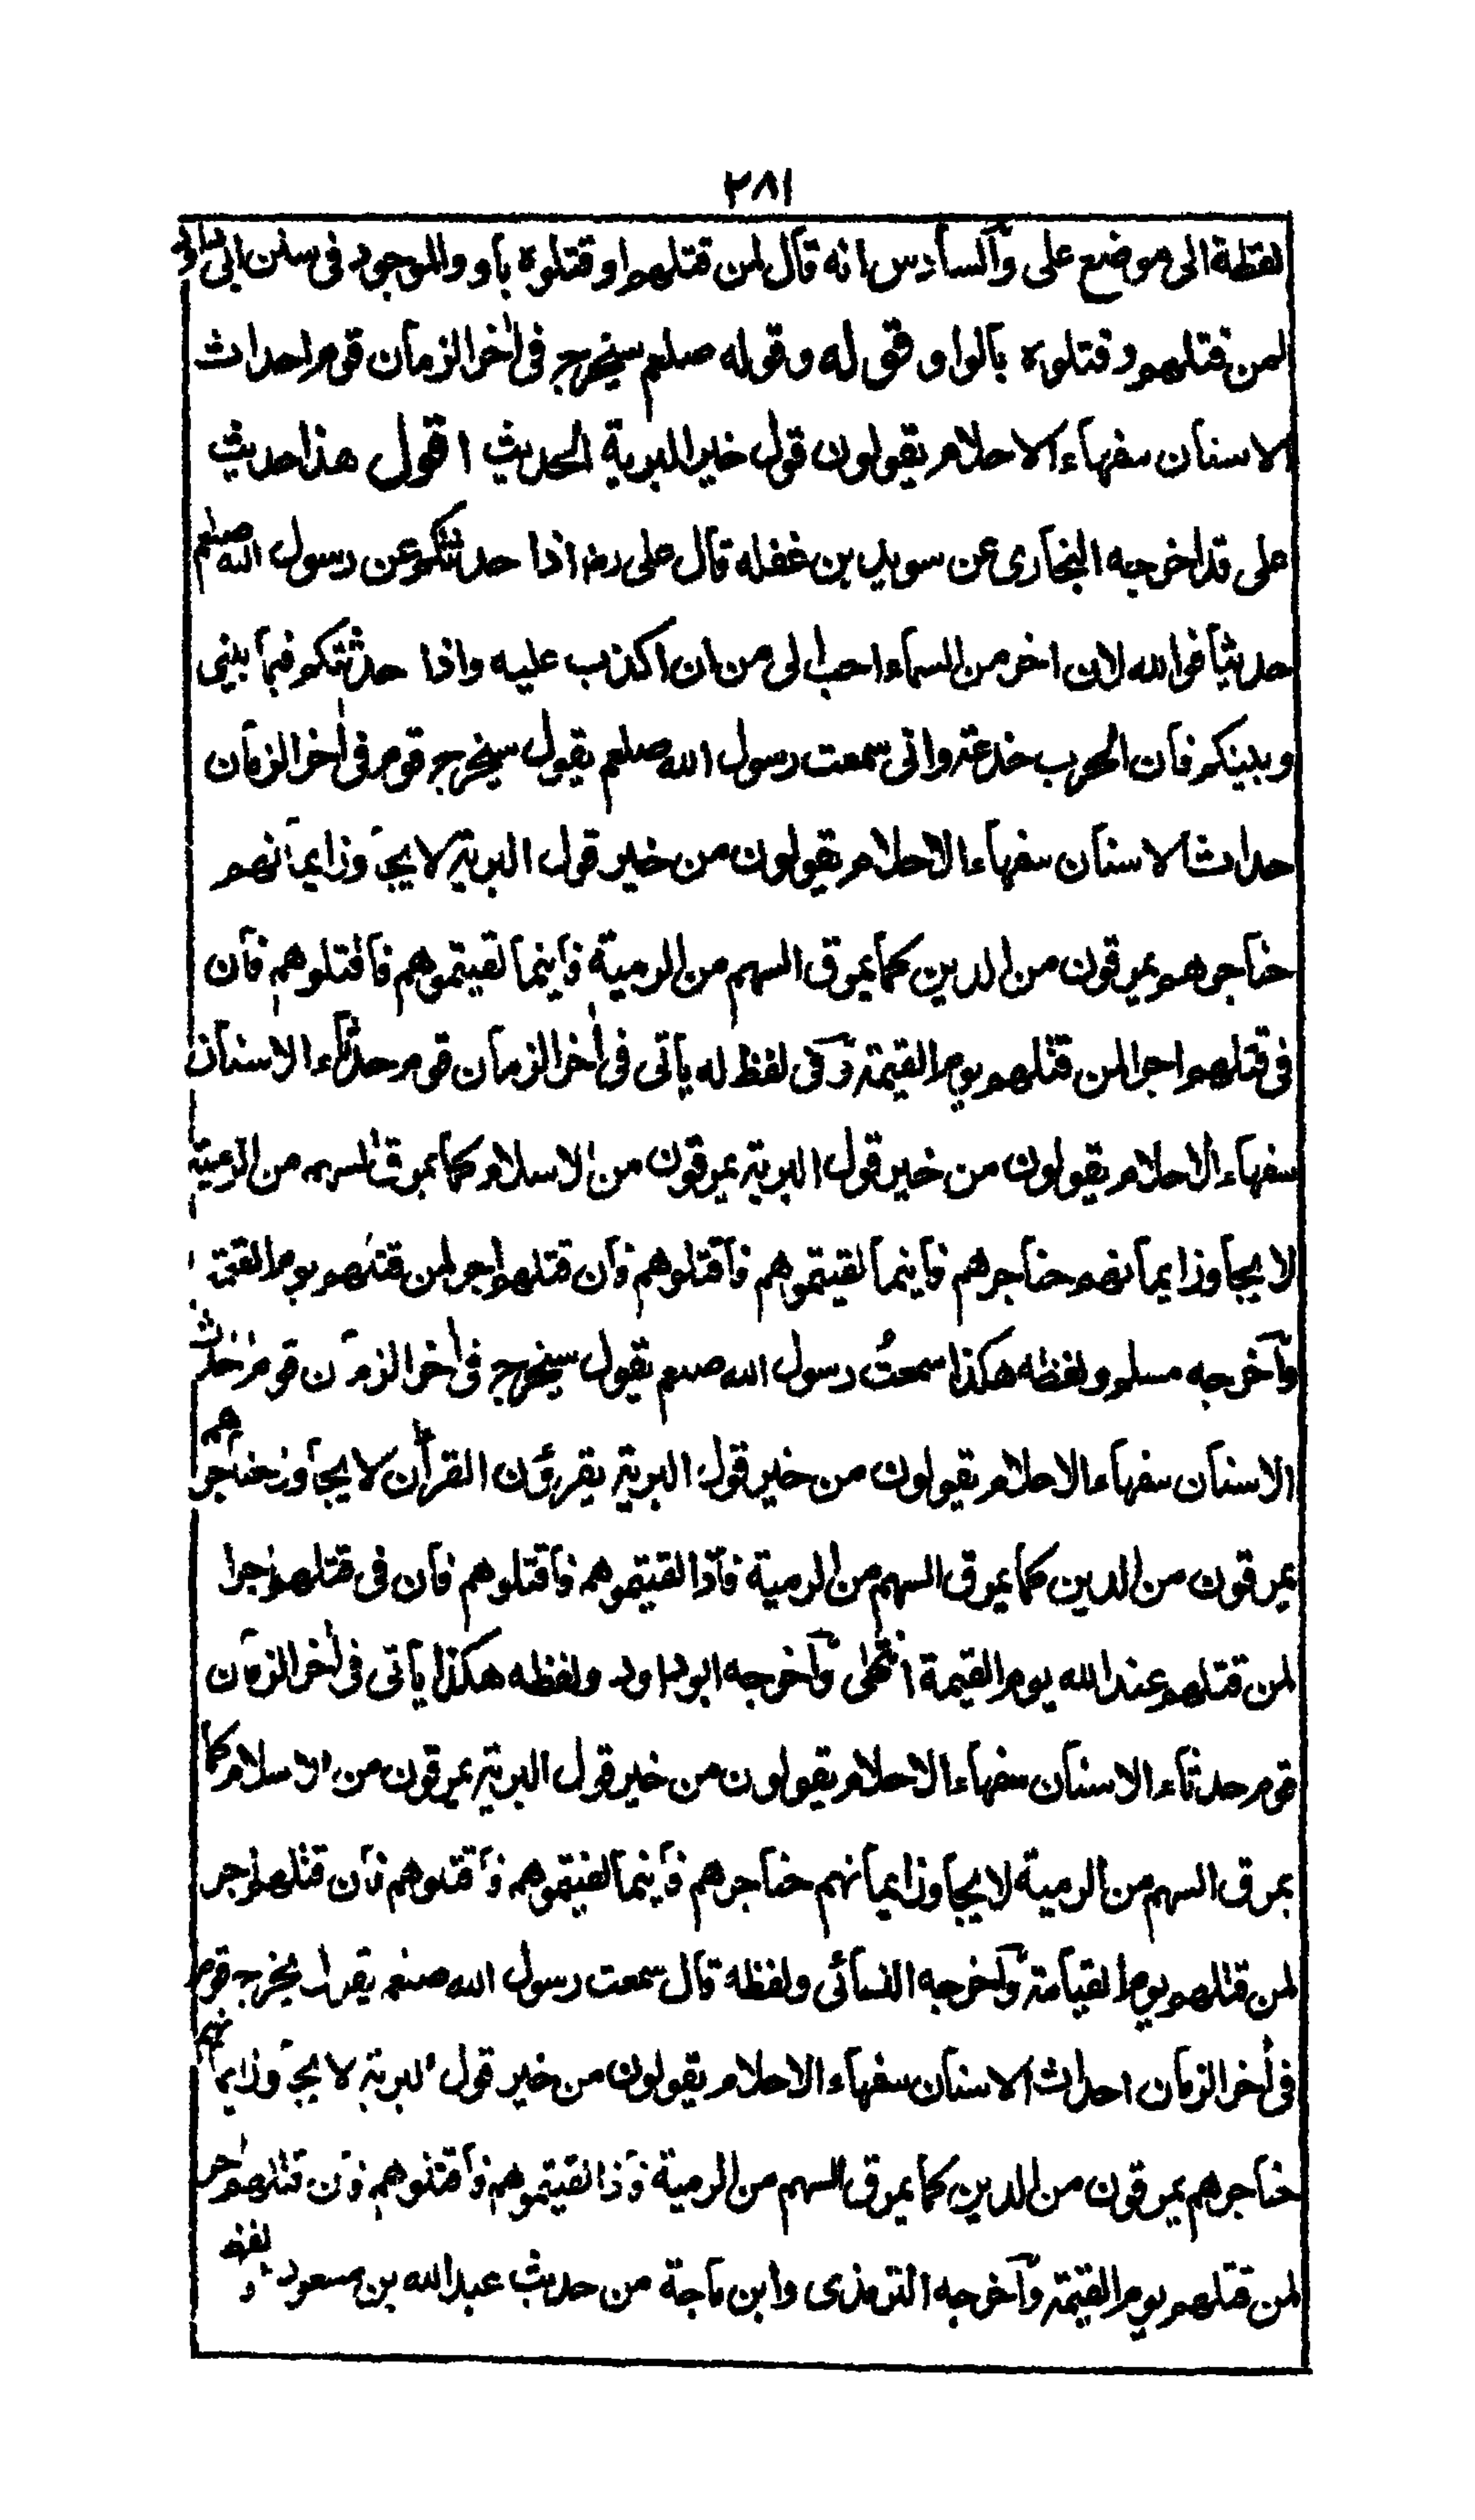 ٢٨١
لفظة الى موضع على والسادس انه قال لمن قتلهم او قتلوه باو والموجود فى سنن ابى داود
لمن قتلهم وقتلوه بالواو قوله وقوله صلعم سيخرج فى اخر الزمان قوم احداث
الاسنان سفهاء الاحلام يقولون قول خير البرية الحديث اقول هذا حديث
على قد اخرجه البخارى عن سويد بن غفله قال على رض اذا حدثتكم عن رسول الله صلعم
حديثا فوالله لان اخر من السماء احب الى من ان اكذب عليه واذا حدثتكم فيما بينى
وبينكم فان الحرب خدعة وانى سمعت رسول الله صلعم يقول سيخرج قوم فى اخر الزمان
حداث الاسنان سفهاء الاحلام يقولون من خير قول البرية لا يجاوز ايمانهم
حناجرهم يمرقون من الدين كما يمرق السهم من الرمية فاينما لقيتموهم فاقتلوهم فان
فى قتلهم اجرا لمن قتلهم يوم القيمة وفى لفظ له ياتى فى اخر الزمان قوم حدثاء الاسنان
سفهاء الاحلام يقولون من خير قول البرية يمرقون من الاسلام كما يمرق السهم من الرمية
لا يجاوز ايمانهم حناجرهم فاينما لقيتموهم فاقتلوهم فان قتلهم اجر لمن قتلهم يوم القيمة
واخرجه مسلم ولفظه هكذا سمعت رسول الله صلعم يقول سيخرج فى اخر الزمان قوم احداث
الاسنان سفهاء الاحلام يقولون من خير قول البرية يقرؤن القرآن لا يجاوز حناجرهم
يمرقون من الدين كما يمرق السهم من الرمية فاذا لقيتموهم فاقتلوهم فان فى قتلهم اجرا
لمن قتلهم عند الله يوم القيمة انتهى واخرجه ابو داود ولفظه هكذا ياتى فى اخر الزمان
قوم حدثاء الاسنان سفهاء الاحلام يقولون من خير قول البرية يمرقون من الاسلام كما
يمرق السهم من الرمية لا يجاوز ايمانهم حناجرهم فاينما لقيتموهم فاقتلوهم فان قتلهم اجر
لمن قتلهم يوم القيامة واخرجه النسائى ولفظه قال سمعت رسول الله صلعم يقول يخرج قوم
فى اخر الزمان احداث الاسنان سفهاء الاحلام يقولون من خير قول البرية لا يجاوز ايمانهم
حناجرهم يمرقون من الدين كما يمرق السهم من الرمية فاذا لقيتموهم فاقتلوهم فان قتلهم اجر
لمن قتلهم يوم القيمة واخرجه الترمذى وابن ماجة من حديث عبد الله بن مسعود ولفظه